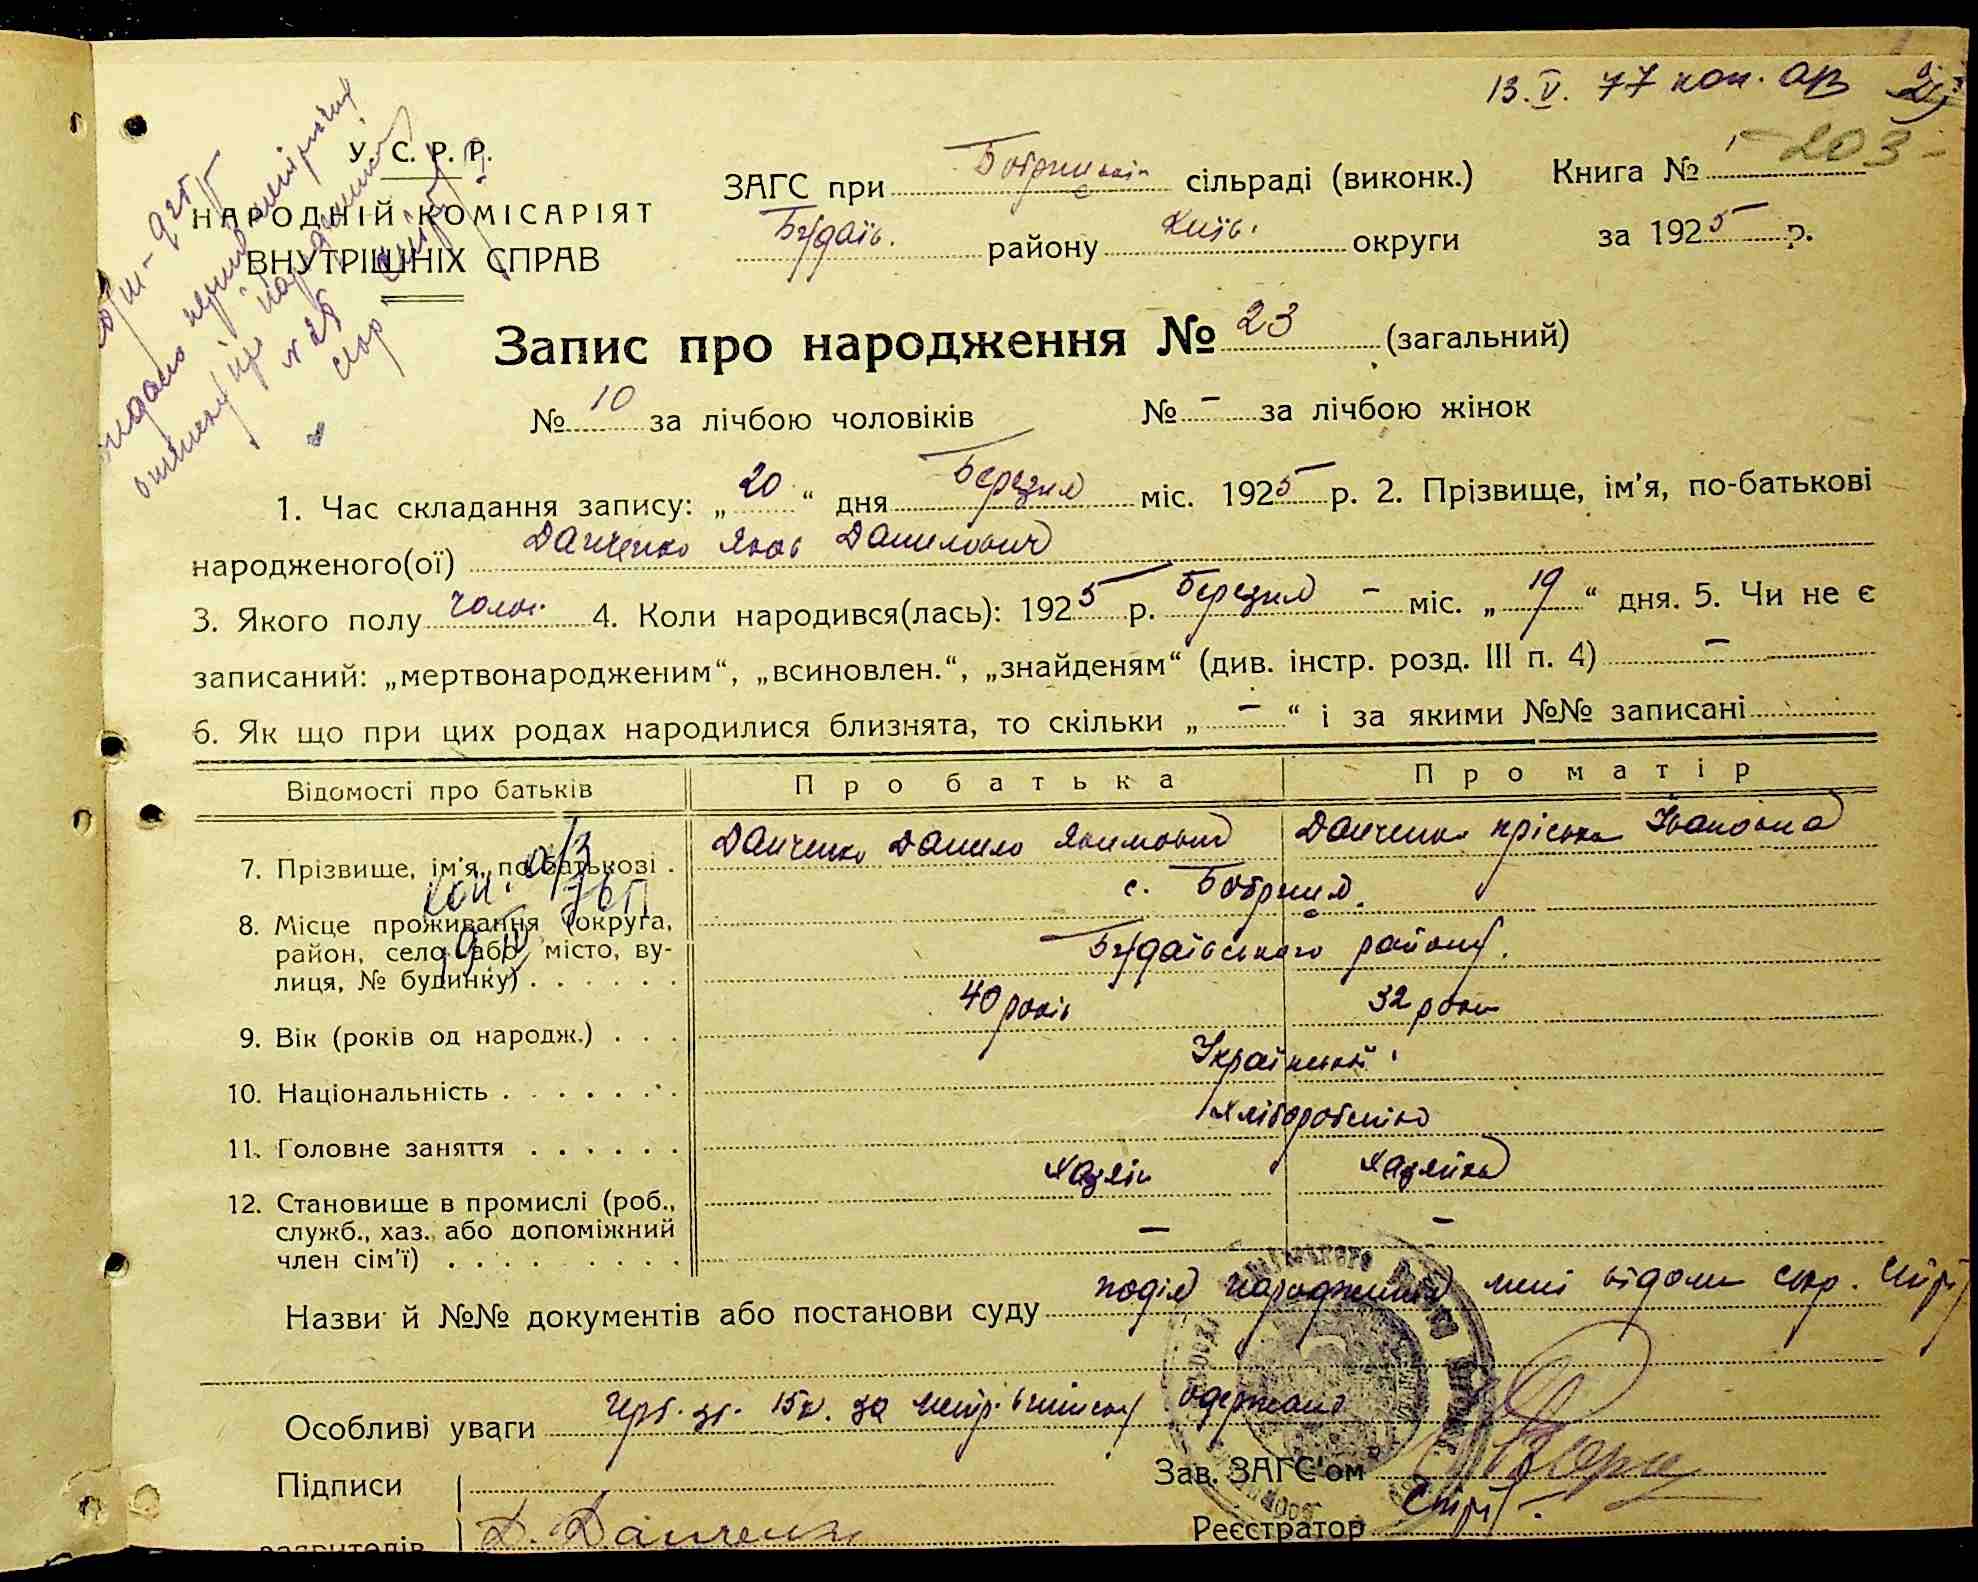 13. V. 77 кон. ар
203 -
У. С. Р. Р.
НАРОДНІЙ КОМІСАРІЯТ
ВНУТРІШНІХ СПРАВ
ЗАГС при Бобрицькій сільраді (виконк.) Книга № 1
Будаїв. району Київ. округи за 1925 р.
Запис про народження № 23 (загальний)
№ 10 за лічбою чоловіків № - за лічбою жінок
1. Час складання запису: „20“ дня Березня міс. 1925 р. 2. Прізвище, ім'я, по-батькові
народженого(ої) Данченко Яков Данилович
3. Якого полу чолов. 4. Коли народився(лась): 1925 р. Березня - міс. „19“ дня. 5. Чи не є
записаний: „мертвонародженим“, „всиновлен.“, „знайденям“ (див. інстр. розд. III п. 4) -
6. Як що при цих родах народилися близнята, то скільки „-“ і за якими №№ записані
Відомості про батьків Про батька Про матір
7. Прізвище, ім'я, по-батькові . Данченко Данило Якимович Данченко Пріська Івановна
8. Місце проживання (округа, с. Бобриця.
район, село або місто, ву- Будаївського району.
лиця, № будинку) . . . . . .
9. Вік (років од народж.) . . . 40 років 32 роки
10. Національність . . . . . . . Українській
11. Головне заняття . . . . . . Хліборобство
12. Становище в промислі (роб., Хазяін Хазяйка
служб., хаз. або допоміжний - -
член сім'ї) . . . . . . . . .
Назви й №№ документів або постанови суду подія народження мені відома
Особливі уваги 15к. за метр. виписку одержано
Підписи Зав. ЗАГС'ом
Д. Данченко Реєстратор